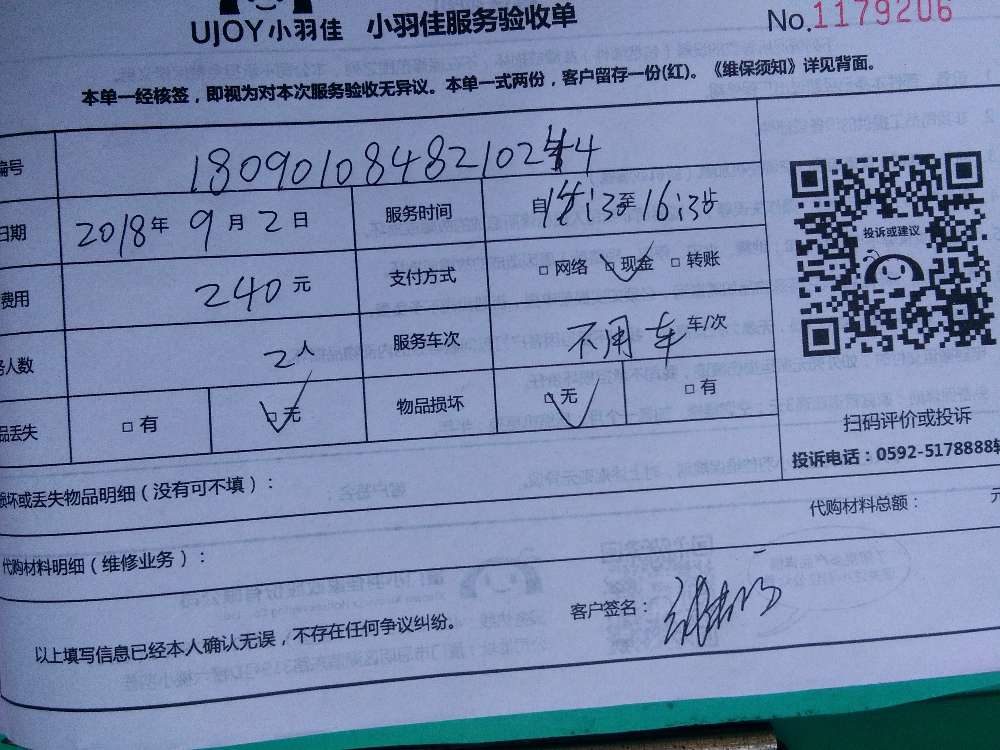 UJOY小羽佳 小羽佳服务验收单 No.1179206
本单一经核签，即视为对本次服务验收无异议。本单一式两份，客户留存一份(红)。《维保须知》详见背面。
编号
日期 2018年9月2日 服务时间 自14:3至16:3
费用 240元 支付方式 □网络 □现金 □转账
人数 2人 服务车次 不用车 车/次
品丢失 □有 □无 物品损坏 □无 □有
投诉或建议
扫码评价或投诉
投诉电话：0592-5178888转
损坏或丢失物品明细（没有可不填）：
代购材料总额： 元
代购材料明细（维修业务）：
以上填写信息已经本人确认无误，不存在任何争议纠纷。 客户签名：